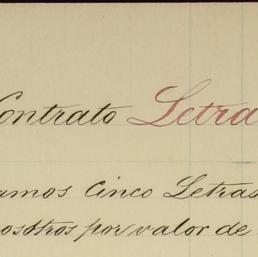 Contrato Letra
amos Cinco Letras
nosotros por valor de